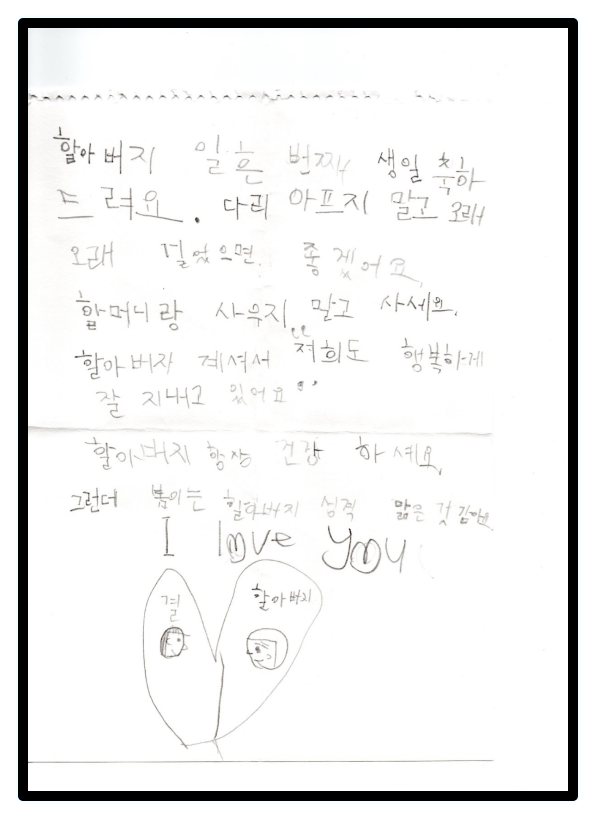 할아버지 일흔 번째 생일 축하
드려요. 다리 아프지 말고 오래
오래 걸었으면 좋겠어요.
할머니랑 싸우지 말고 사세요.
할아버지 계셔서 "저희도 행복하게
잘 지내고 있어요"
할아버지 항상 건강 하세요.
그런데 봄이는 할아버지 성격 닮은 것 같아요
I love you
결 할아버지